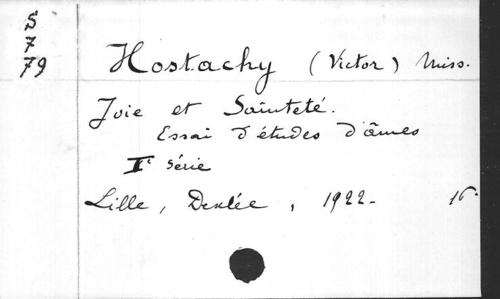 S
7
79
Hostachy (Victor) Miss.
Joie et Sainteté.
Essai d'études d'âmes
Iᵉ série
Lille, Desclée, 1922- 16°